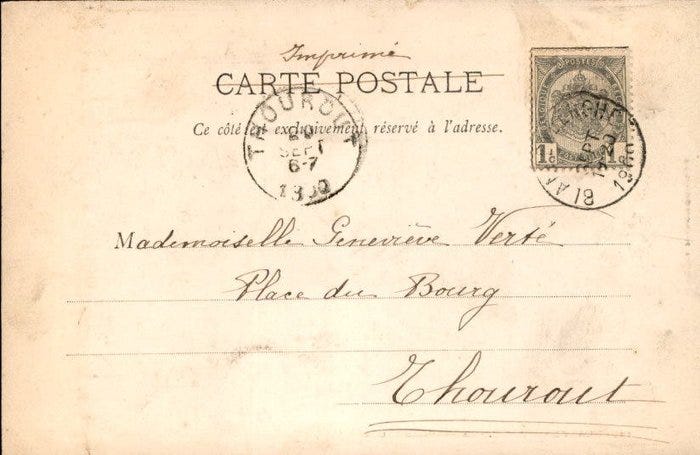 Imprimé
CARTE POSTALE
Ce côté est exclusivement réservé à l'adresse.
THOUROUT
SEPT
6-7
1
SEPT
18
Mademoiselle Geneviève Verté
Place du Bourg
Thourout